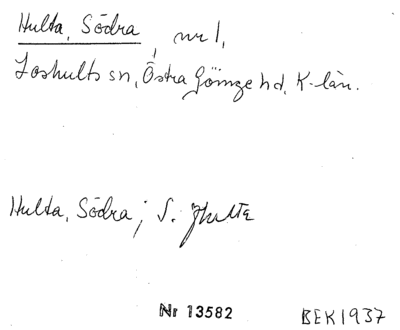 Hulta, Södra, nr 1,
Loshults sn, Östra Göinge hd, K-län.
Hulta, Södra; S. Hulta
Nr 13582
BEK1937